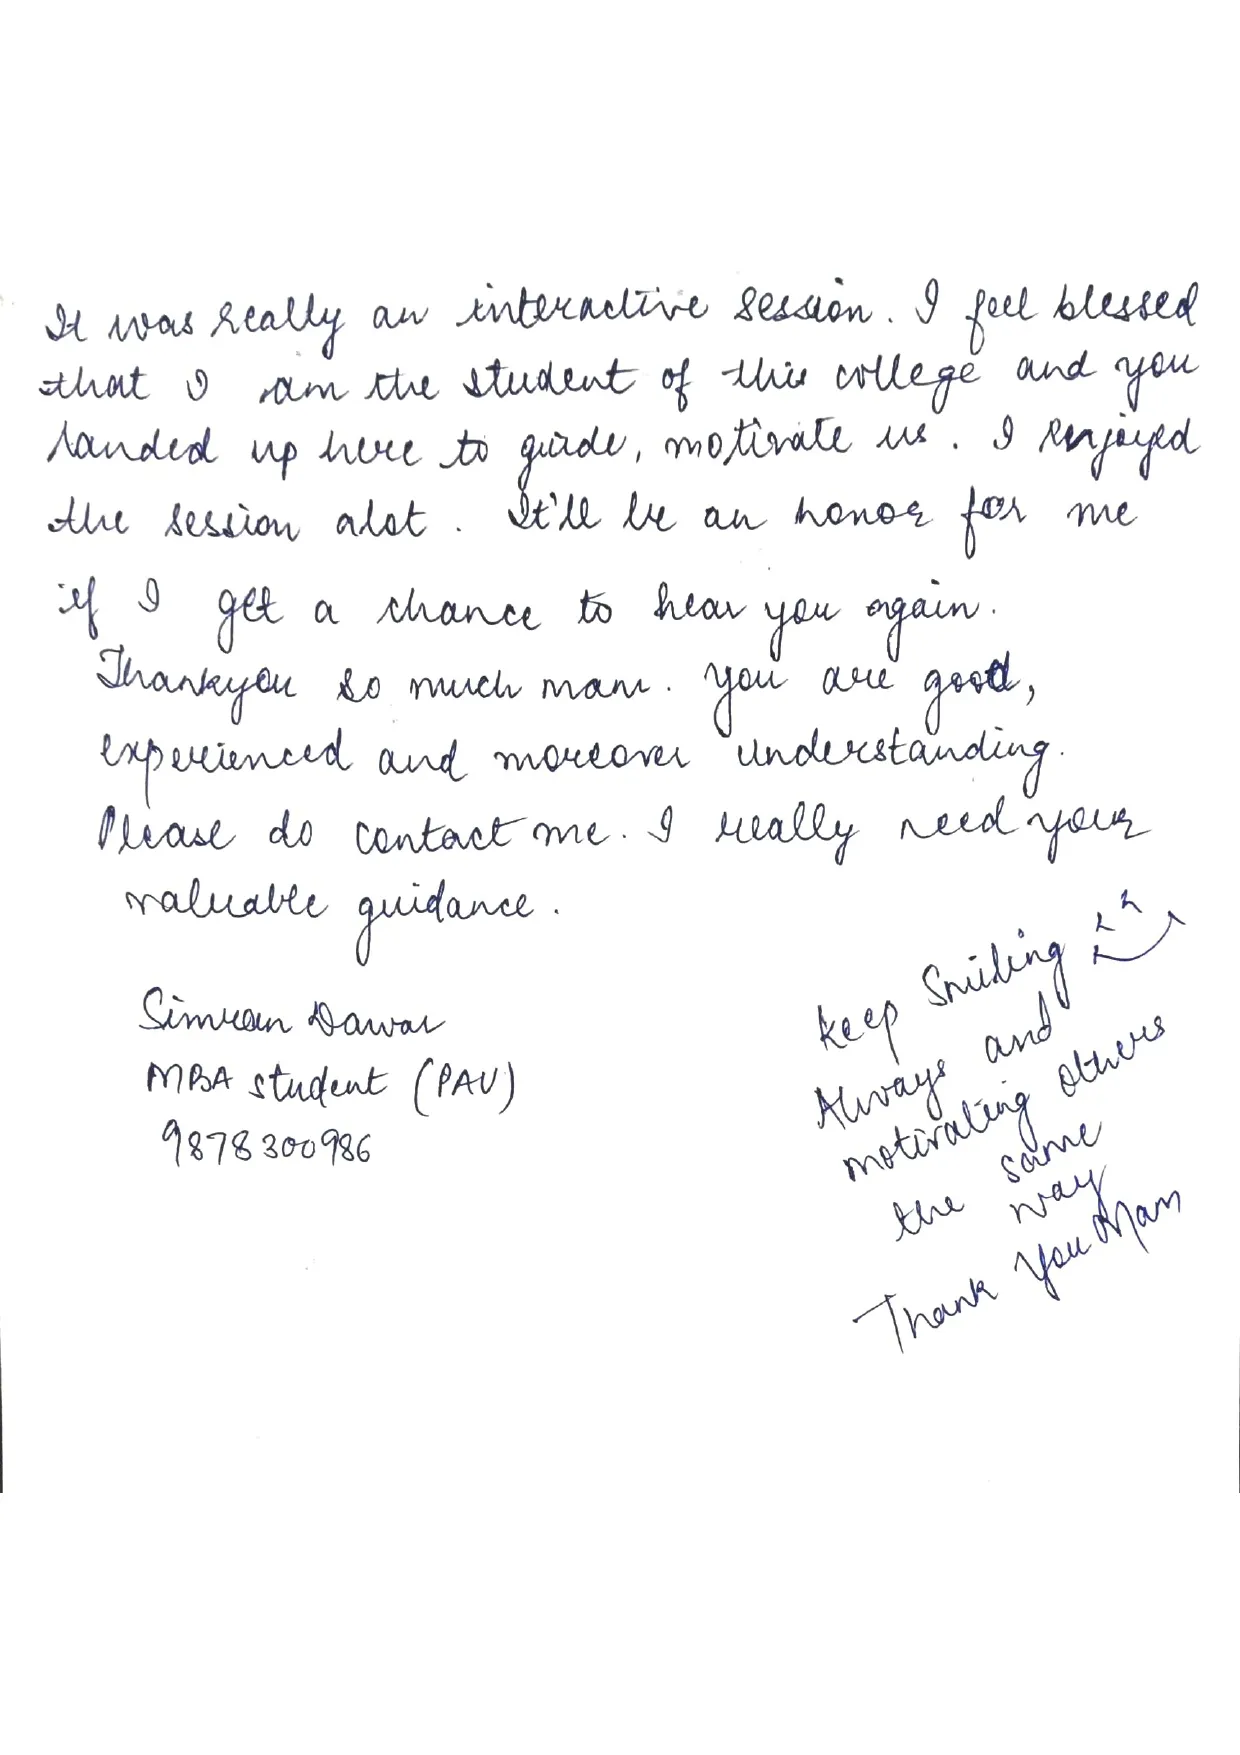 It was really an interactive session. I feel blessed
that I am the student of this college and you
landed up here to guide, motivate us. I enjoyed
the session alot. It'll be an honor for me
if I get a chance to hear you again.
Thankyou so much mam. you are good,
experienced and moreover understanding.
Please do contact me. I really need your
valuable guidance.
Simran Dawar
MBA student (PAU)
9878300986
Keep Smiling
Always and
motivating others
the same
way
Thank You Mam